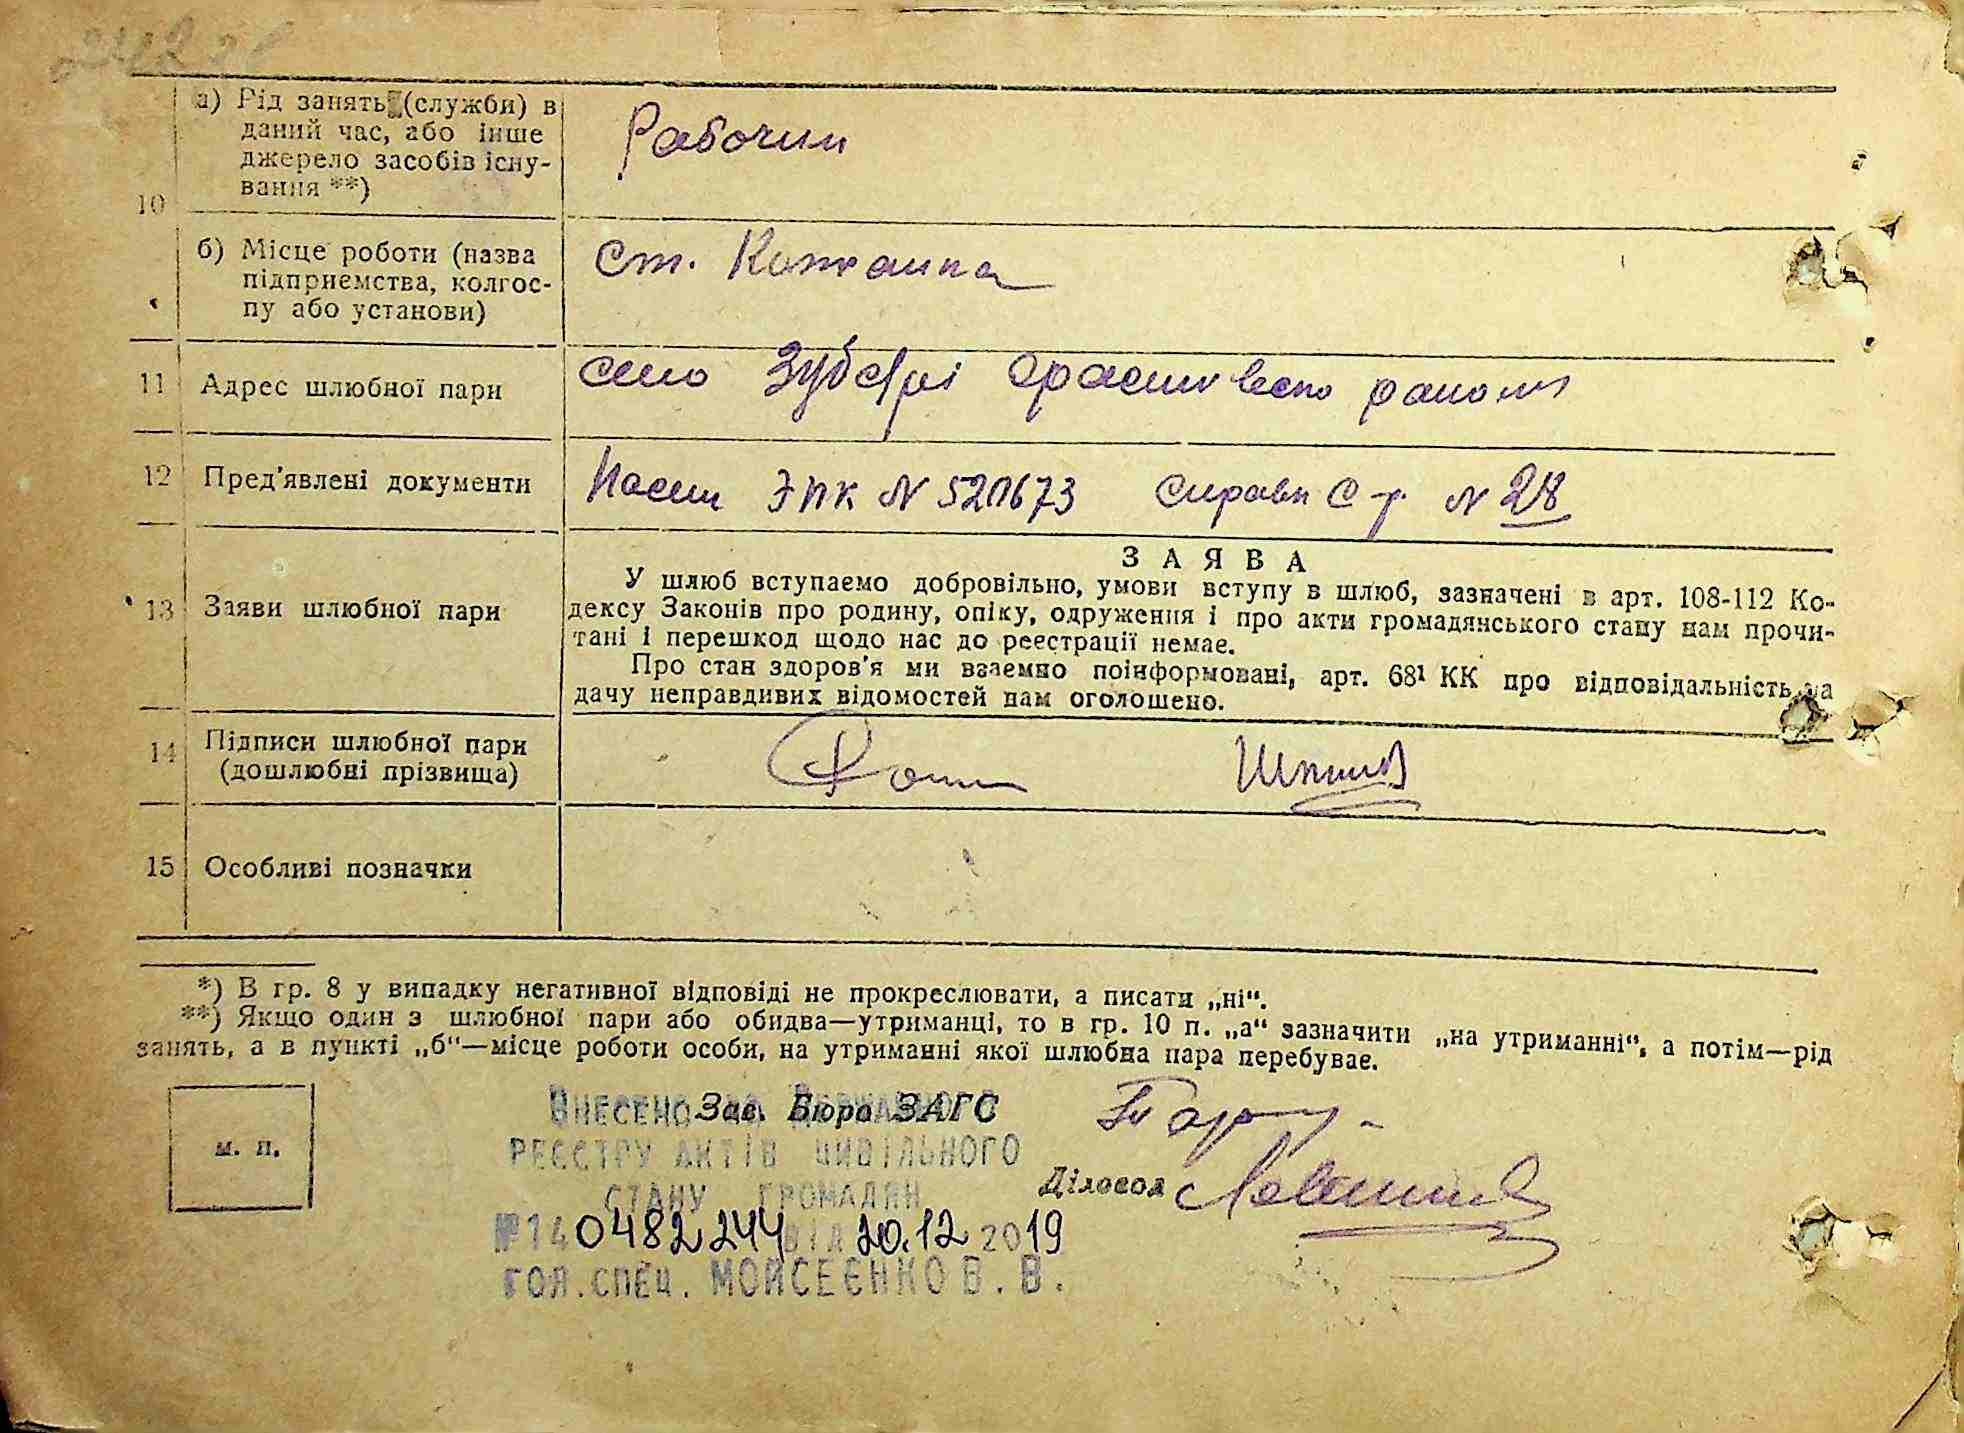 10
а) Рід занять (служби) в
даний час, або інше
джерело засобів існу-
вання **)
Рабочим
б) Місце роботи (назва
підприємства, колгос-
пу або установи)
ст.
11 Адрес шлюбної пари
село района
12 Пред'явлені документи
Пасп N 520673 справк N 28
13 Заяви шлюбної пари
ЗАЯВА
У шлюб вступаємо добровільно, умови вступу в шлюб, зазначені в арт. 108-112 Ко-
дексу Законів про родину, опіку, одруження і про акти громадянського стану нам прочи-
тані і перешкод щодо нас до реєстрації немає.
Про стан здоров'я ми взаємно поінформовані, арт. 68¹ КК про відповідальність за
дачу неправдивих відомостей нам оголошено.
14 Підписи шлюбної пари
(дошлюбні прізвища)
15 Особливі позначки
*) В гр. 8 у випадку негативної відповіді не прокреслювати, а писати „ні“.
**) Якщо один з шлюбної пари або обидва—утриманці, то в гр. 10 п. „а“ зазначити „на утриманні“, а потім—рід
занять, а в пункті „б“—місце роботи особи, на утриманні якої шлюбна пара перебуває.
м. п.
Зав. Бюро ЗАГС
Діловод
ВНЕСЕНО ДО ДЕРЖАВНОГО
РЕЄСТРУ АКТІВ ЦИВІЛЬНОГО
СТАНУ ГРОМАДЯН
№ 140482244 ВІД 20.12 2019
ГОЛ. СПЕЦ. МОЙСЕЄНКО В. В.